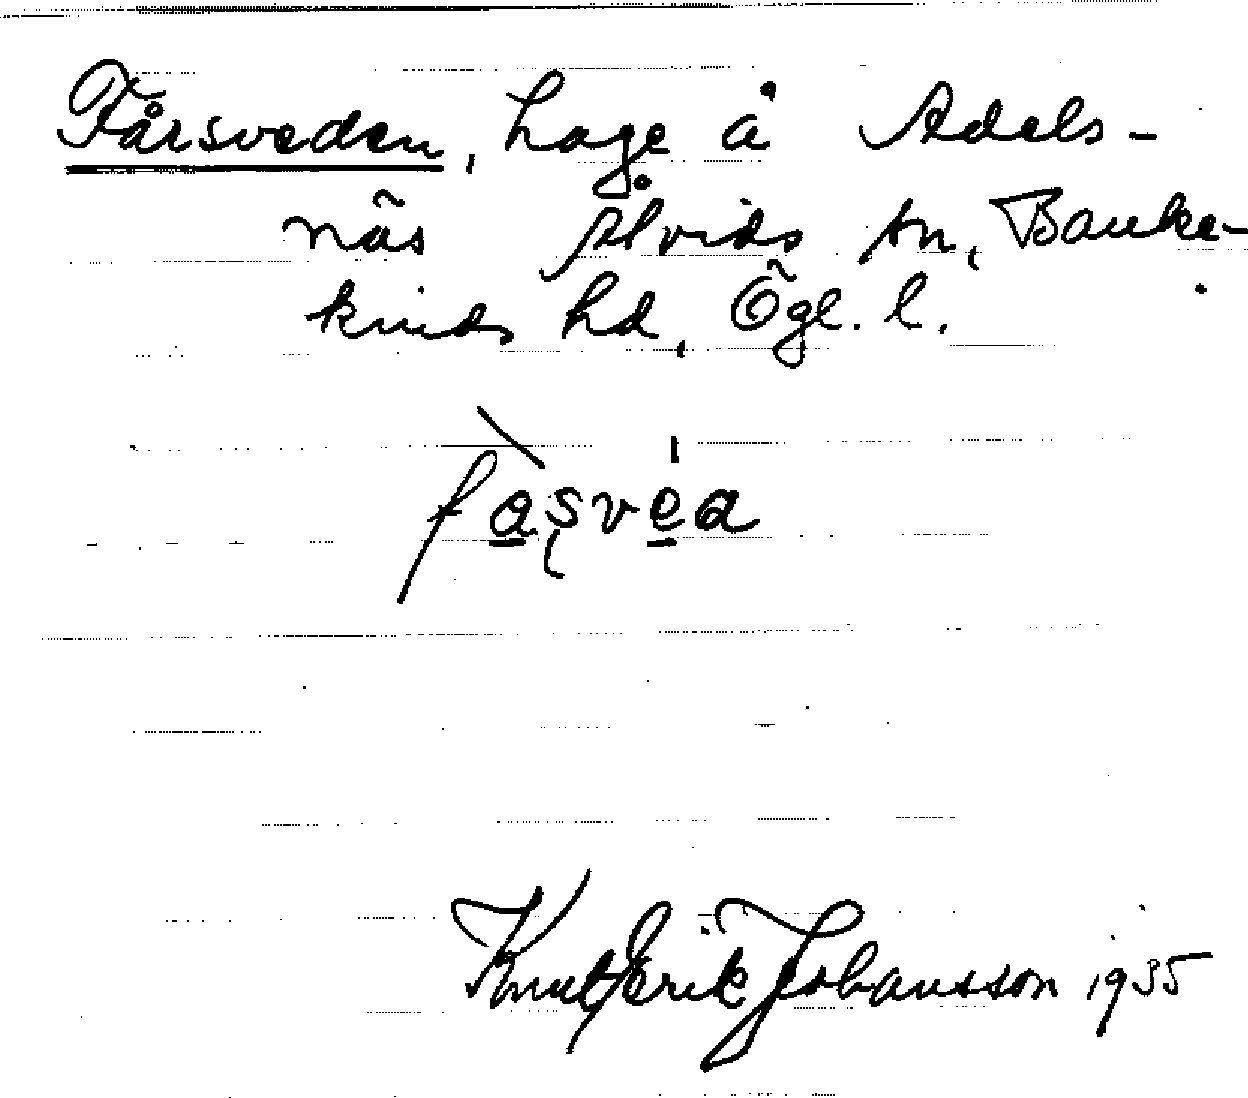 Fårsveden, hage å Adels-
näs Åtvids sn, Banke-
kinds hd, Ögl. l.
fa̠şve̠a
Knut Erik Johansson 1935